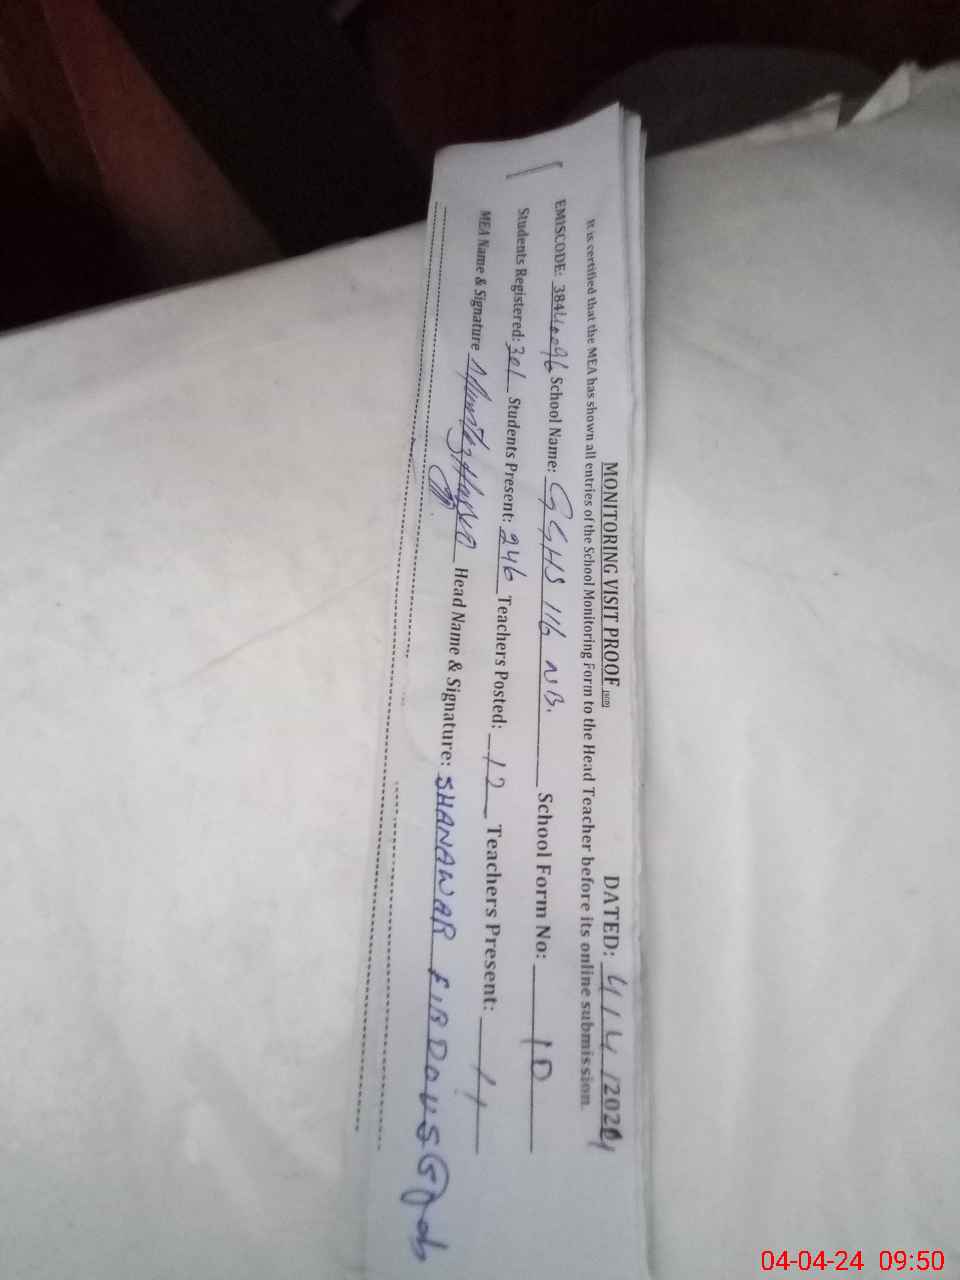 MONITORING VISIT PROOF DATED: 4/4/2024
It is certified that the MEA has shown all entries of the School Monitoring Form to the Head Teacher before its online submission.
EMISCODE: 38440096 School Name: GGHS 116 NB. School Form No: 10
Students Registered: 301 Students Present: 246 Teachers Posted: 12 Teachers Present: 11
MEA Name & Signature Head Name & Signature: SHANAWAR FIRDOUS
04-04-24 09:50